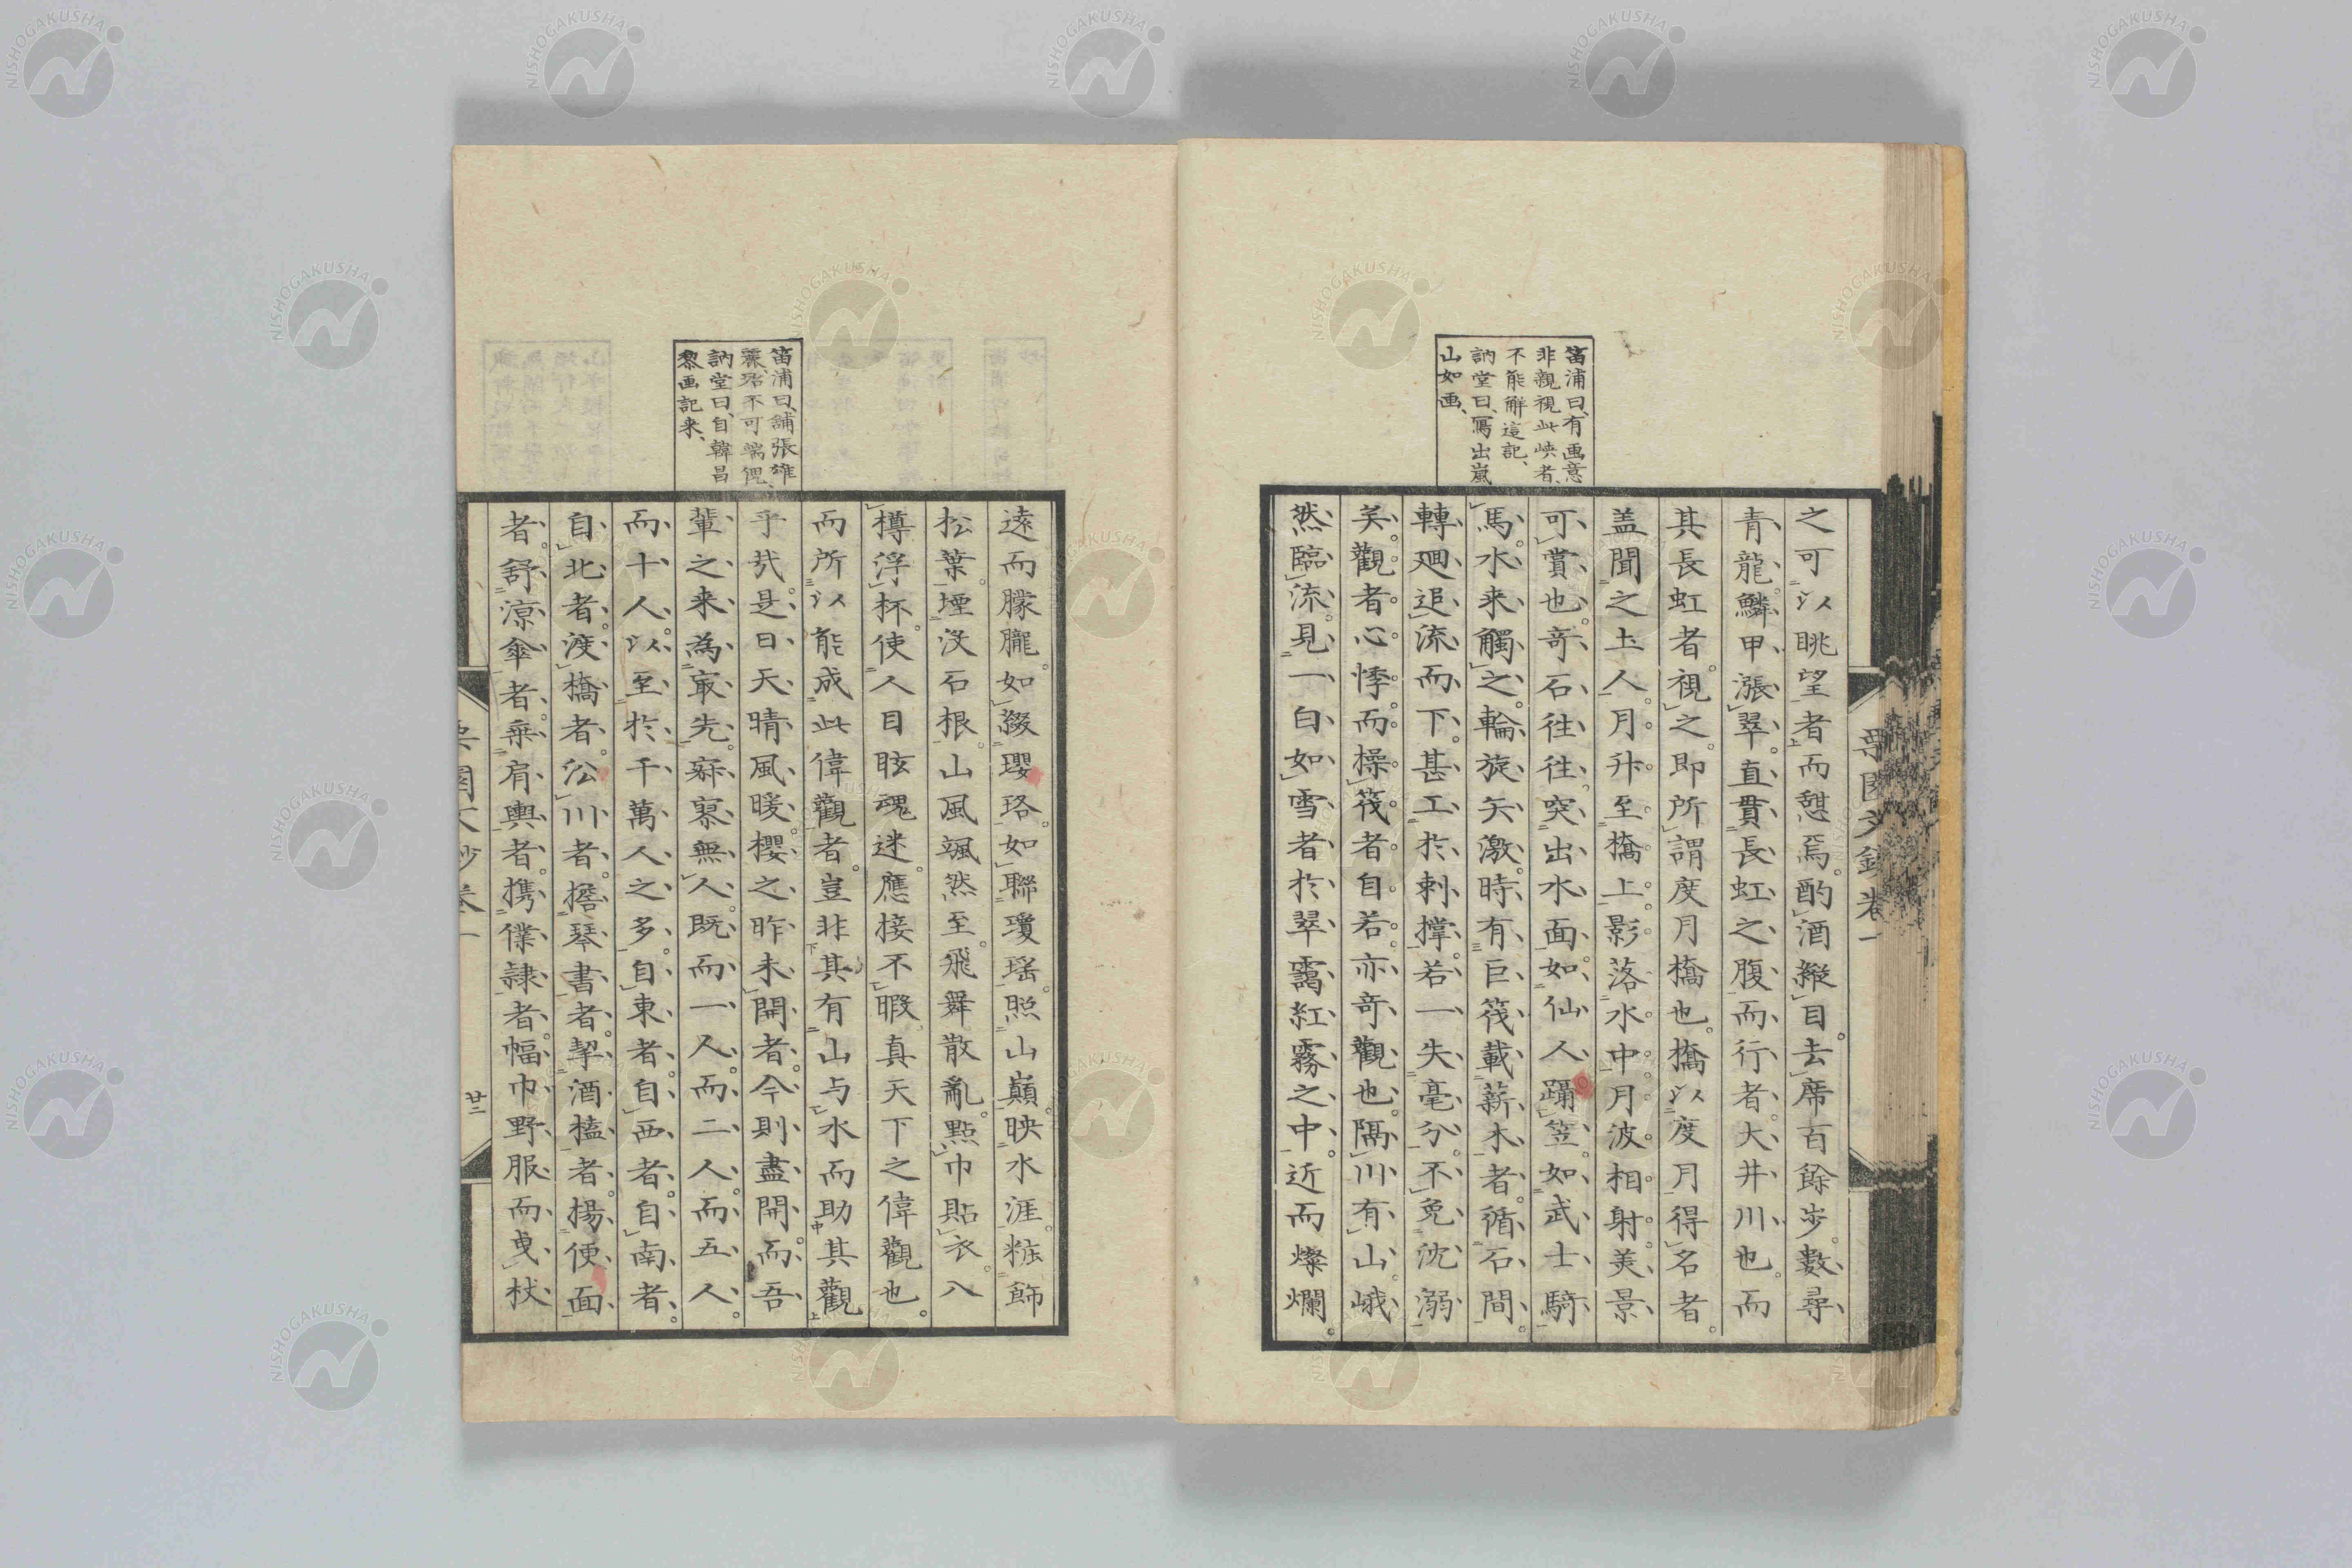 笛浦曰、有画意
非親視此峽者、
不能解這記、
訥堂曰、寫出嵐
山如画、
之可以眺望者而憇焉。酌酒縱目。去席百餘步。數尋
青龍鱗甲漲翠。直貫長虹之腹而行者。大井川也。而
其長虹者。視之。即所謂度月橋也。橋以度月得名者。
盖聞之土人。月升至橋上。影落水中。月波相射。美景
可賞也。奇石往往突出水面。如仙人躡笠。如武士騎
馬。水来觸之。輪旋矢激。時有巨筏載薪木者。循石間。
轉廻追流而下。甚工於刺撑。若一失毫分。不免沈溺
矣。觀者心悸。而操筏者自若。亦奇觀也。隔川有山。峨
然臨流。見一白如雪者於翠靄紅霧之中。近而燦爛。
笛浦曰、舖張雄
麗、殆不可端倪、
訥堂曰、自韓昌
黎画記来、
遠而朦朧。如綴瓔珞。如聯瓊瑶。照山巓。映水涯。粧飾
松葉。堙没石根。山風颯然至。飛舞散亂。點巾貼衣。八
樽浮杯。使人目眩魂迷。應接不暇。真天下之偉觀也。
而所以能成此偉觀者。豈非其有山与水而助其觀
乎哉。是日天晴風暖。櫻之昨未開者。今則盡開。而吾
輩之来為㝡先。寂寥無人。既而一人。而二人。而五人。
而十人。以至於千萬人之多。自東者。自西者。自南者。
自北者。渡橋者。㳂川者。擔琴書者。挈酒榼者。楊便面
者。舒凉傘者。乗肩輿者。携僕隷者。幅巾野服而曳杖
廿二